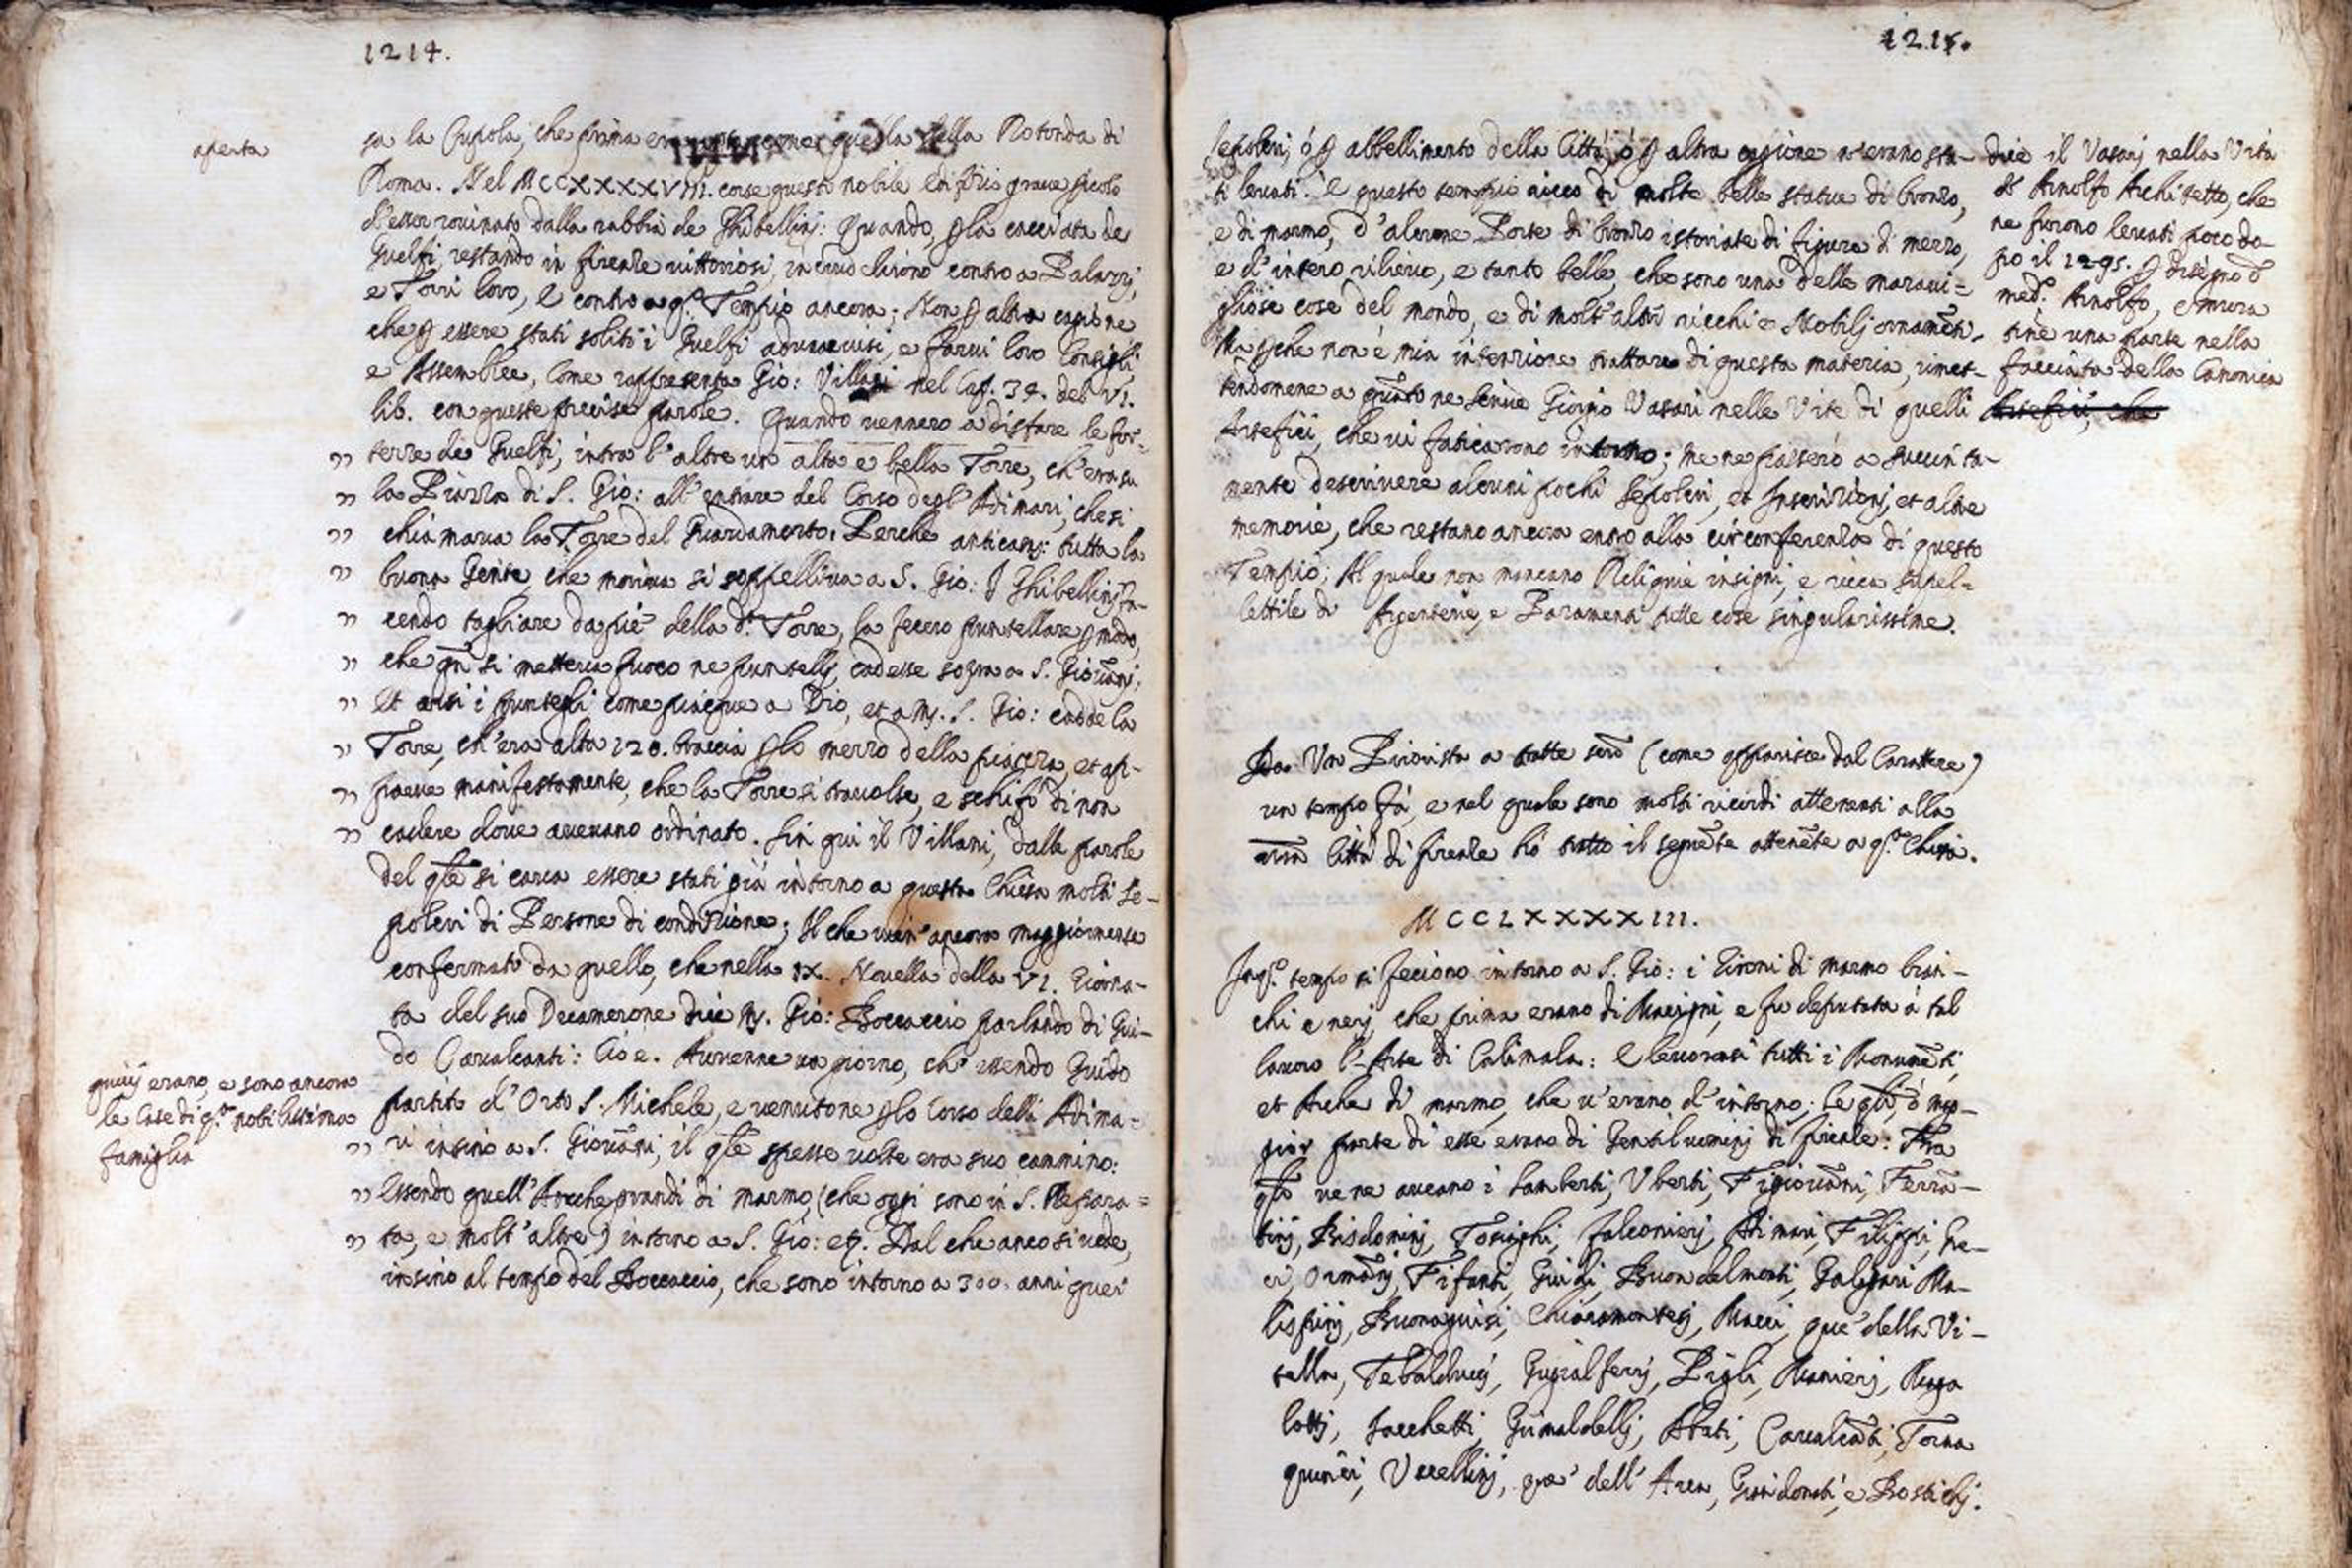 1214.
aperta
sa la Cupola, che prima era aperta come quella della Rotonda di
Roma. Nel MCCXXXXVIII. corse questo nobile edifitio grave pericolo
d'esser rovinato dalla rabbia de Ghibellinj: Quando, p la cacciata de
Guelfi, restando in firenze vittoriosi, incrudelirono contro a Palazzj,
e Torri loro, e contro a q.to Tempio ancora; Non p altra cagione
che p essere stati soliti i Guelfi adunarvisi, e farvi loro Consigli
e Assemblee, Come rappresenta Gio: Villani nel Cap. 34. del VI.
lib. con queste precise parole. Quando vennero a disfare le for-
" terze de Guelfi, intra l'altre un alta e bella Torre, ch'era su
" la Piazza di S. Gio: all'entrare del Corso degl'Adimari, che si
" chiamava la Torre del Guardamorto, Perche anticam: tutta la
" buona Gente, che moriva si soppelliva a S. Gio: I Ghibellinj fa-
" cendo tagliare da pie' della d.a Torre, la fecero puntellare p modo,
" che qn si metteva fuoco ne puntellj, cadesse sopra a S. Giovanj;
" et arsi i puntegli come piacque a Dio, et a M. S. Gio: cadde la
" Torre, ch'era alta 120. braccia p lo mezzo della piazza, et ap-
" parve manifestamente, che la Torre si travolse, e schifò di non
" cadere dove avevano ordinato. Sin qui il Villani, dalle parole
del qle si cava essere stati già intorno a questa Chiesa molti Se-
polcri di Persone di condizione; Il che vien' ancora maggiormente
confermato da quello, che nella IX. Novella della VI. Giorna-
ta del suo Decamerone dice M. Gio: Boccaccio parlando di Gui-
do Cavalcanti: Cioè. Avvenne un giorno, ch' essendo Guido
quivj erano, e sono ancora
le Case di q.ta nobilissima
famiglia
partito d'Orto S. Michele, e venutone p lo Corso delli Adima-
" ri insino a S. Giovanj, il qle spesse volte era suo cammino:
" Essendo quell'Arche grandi di marmo, (che oggi sono in S. Reparra=
" ta, e molt'altre) intorno a S. Gio: et. Dal che anco si vede,
insino al tempo del Boccaccio, che sono intorno a 300. anni quei
1215.
sepolcri, ó p abbellimento della Città, ó p altra cagione n'erano sta-
ti levati. E questo tempio ricco di molte belle statue di bronzo,
e di marmo, d'alcune Porte di bronzo istoriate di figure di mezzo,
e d'intero rilievo, e tanto belle, che sono una delle maravi=
gliose cose del mondo, e di molt'altri ricchi e Nobilj ornamēti.
Ma pche non è mia intenzione trattare di questa materia, rimet-
tendomene a quāto ne scrive Giorgio Vasari nelle Vite di quelli
Artefici, che vi faticarono intorno; me ne passerò a succinta-
mente descrivere alcuni pochi Sepolcri, et Inscrizionj, et altre
memorie, che restano ancora entro alla circonferenza di questo
Tempio; Al quale non mancano Reliquie insigni, e ricca supel=
lettile di Argenterie, e Paramenti tutte cose singularissime.
dice il Vasarj nella Vita
di Arnolfo Architetto, che
ne furono levati poco do-
po il 1295. p disegno d
med.o Arnolfo, e mura
tine una parte nella
facciata della Canonica
Artefici, che
Da Un Priorista a tratte scrò (come apparisce dal Carattere)
un tempo fà, e nel quale sono molti ricordi attenenti alla
nra Città di firenze hò tratto il seguēte attenēte a q.ta Chiesa.
MCCLXXXXIII.
In q.o tempo si feciono intorno a S. Gio: i Gironi di marmo bian-
chi e nerj, che prima erano di Macigni, e fu deputata à tal
lavoro l'Arte di Calimala: E levoronsi tutti i Monumēti,
et Arche di marmo, che v'erano d'intorno; le qli, ò mag-
gior parte di esse erano di Gentiluominj di firenze: Fra
qlo ve ne aveano i Lamberti, Uberti, Figiovāni, Ferra-
tinj, Bisdominj, Tosinghi, Falconierj, Adimari, Filippi, Gre-
ci, Ormānj, Fifanti, Guidi, Buondelmonti, Galigari Ma-
lispinj, Buonaguisi, Chiaramontesj, Macci, que' della Vi-
tella, Tebalducj, Gugialferrj, Pigli, Manierj, Maga
lottj, Sacchetti, Grimaldellj, Abati, Cavalcāti, Torna
quincj, Uccellinj, que' dell' Arca, Guidonati, e Bostichj.